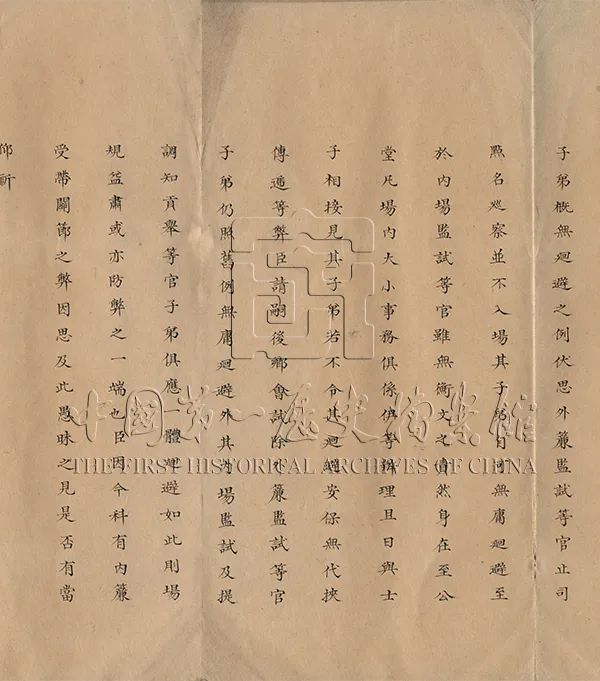 子弟概無廻避之例伏思外簾監試等官止司
點名廵察並不入場其子弟自可無庸廻避至
於内場監試等官雖無衡文之責然身在至公
堂凡場内大小事務俱係伊等辦理且日與士
子相接見其子弟若不令其廻避安保無代挾
傳遞等弊臣請嗣後鄉會試除外簾監試等官
子弟仍照舊例無庸廻避外其内場監試及提
調知貢舉等官子弟俱應一體廻避如此則場
規益肅或亦防弊之一端也臣因今科有内簾
受帶關節之弊因思及此愚昧之見是否有當
仰祈
中國第一歷史檔案館
THE FIRST HISTORICAL ARCHIVES OF CHINA